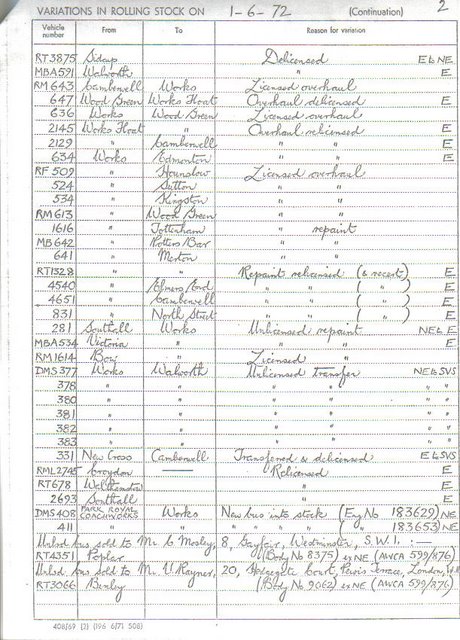 VARIATIONS IN ROLLING STOCK ON 1-6-72 (Continuation) 2
Vehicle number From To Reason for variation
RT3875 Sidcup Delicensed E & NE
MBA591 Walworth " E
RM643 Camberwell Works Licensed overhaul
647 Wood Green Works Float Overhaul delicensed E
636 Works Wood Green Licensed overhaul
2145 Works Float " Overhaul relicensed E
2129 " Camberwell " " E
634 Works Edmonton " " E
RF509 " Hounslow Licensed overhaul
524 " Sutton " "
534 " Kingston " "
RM613 " Wood Green " "
1616 " Tottenham " repaint
MB642 " Potters Bar " "
641 " Merton " "
RT1528 " " Repaint relicensed (& recert) E
4540 " Elmers End " " ( " ) E
4651 " Camberwell " " ( " ) E
831 " North Street " " ( " ) E
281 Southall Works Unlicensed repaint NE & E
MBA534 Victoria " " " E
RM1614 Bow " Licensed "
DMS377 Works Walworth Unlicensed transfer NE & SVS
378 " " " " " "
380 " " " " " "
381 " " " " " "
382 " " " " " "
383 " " " " " "
331 New Cross Camberwell Transferred & delicensed E & SVS
RML2745 Croydon —— Relicensed E
RT678 Walthamstow " E
2693 Southall " E
DMS408 PARK ROYAL COACHWORKS Works New bus into stock (Eng No 183629) NE
411 " " " " " " ( " 183653) NE
Unlsd bus sold to Mr. C Mosley, 8, Westminster, S.W.1. :—
RT4351 Poplar (Body No 8375) ex NE (AWCA 599/876)
Unlsd bus sold to Mr. V Rayner, 20, Court, Terrace, London,
RT3066 Bexley (Body No 9062) ex NE (AWCA 599/876)
408/69 (2) (196 6/71 508)